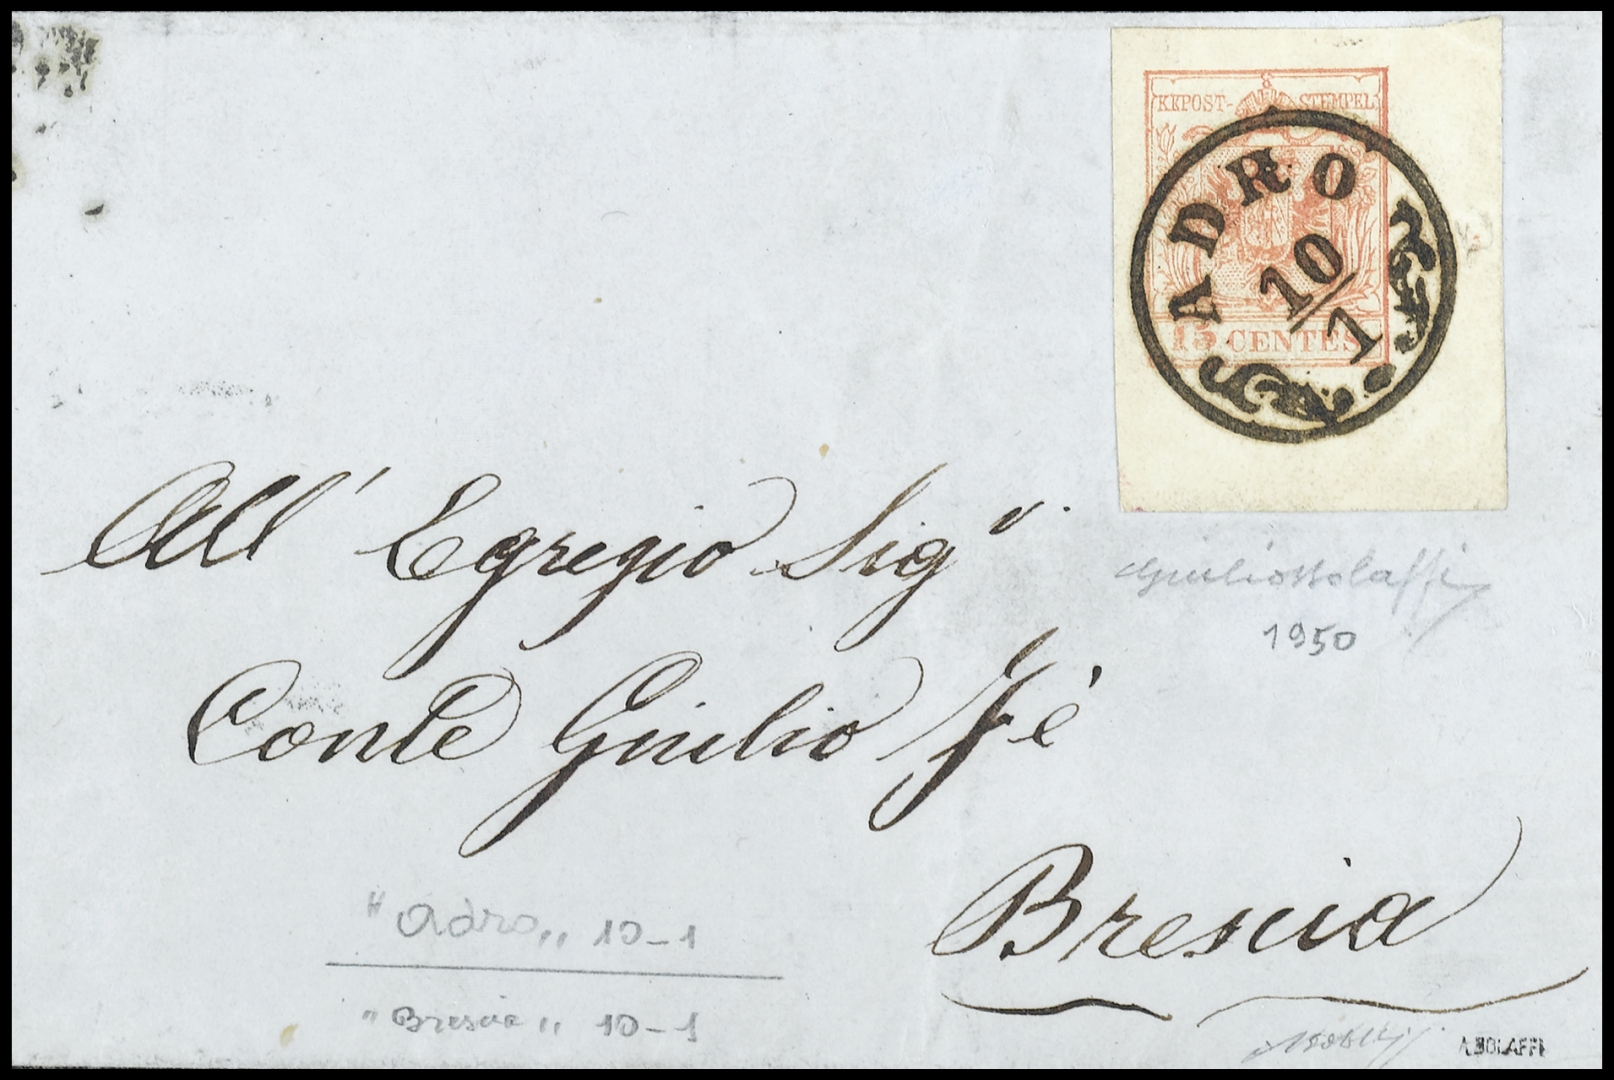 KKPOST-STEMPEL
ADRO
10/1
15 CENTES
All' Egregio Sigr.
Giulio Bolaffi
1950
Conte Giulio Fè
Brescia
"Adro„ 10-1
"Brescia„ 10-1
A.BOLAFFI